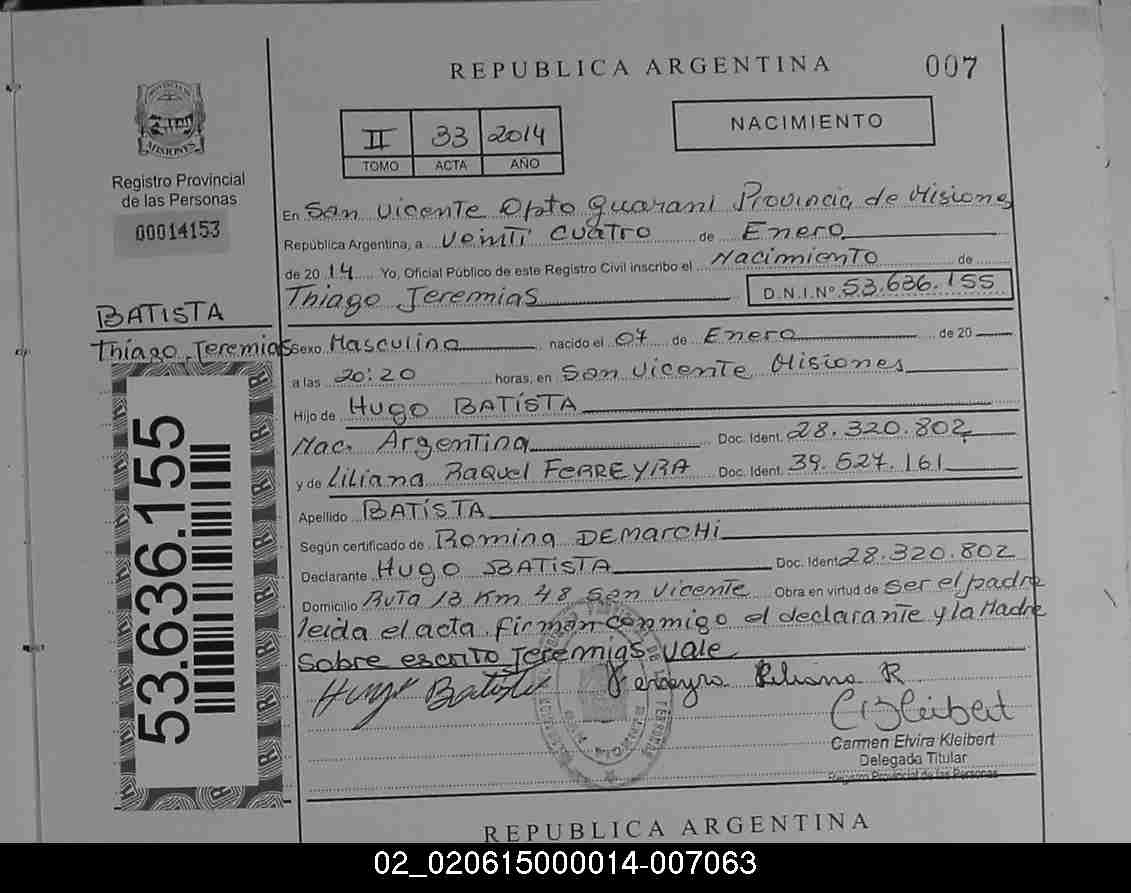 REPUBLICA ARGENTINA
007
PROVINCIA DE
MISIONES
Registro Provincial
de las Personas
00014153
II 33 2014
TOMO ACTA AÑO
NACIMIENTO
En San Vicente Dpto Guaraní Provincia de Misiones
República Argentina, a Veinti cuatro de Enero
de 2014 Yo, Oficial Público de este Registro Civil inscribo el Nacimiento de
Thiago Jeremias D.N.I.Nº 53.636.155
BATISTA
Thiago Jeremias
Sexo Masculino nacido el 07 de Enero de 20
a las 20:20 horas, en San Vicente Misiones
Hijo de Hugo BATISTA
Nac. Argentina Doc. Ident. 28.320.802
y de Liliana Raquel FERREYRA Doc. Ident. 39.527.161
Apellido BATISTA
Según certificado de Romina DEMARCHI
Declarante Hugo BATISTA Doc. Ident. 28.320.802
Domicilio Ruta 13 Km 48 San Vicente Obra en virtud de ser el padre
leida el acta firman conmigo el declarante y la Madre
Sobre escrito Jeremias vale
Hugo Batista Ferreyra Liliana R
Carmen Elvira Kleibert
Delegada Titular
Registro Provincial de las Personas
53.636.155
REPUBLICA ARGENTINA
02_020615000014-007063